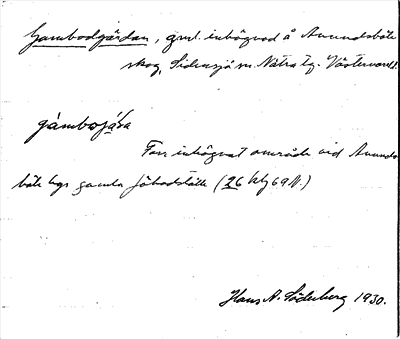 Gambodgärdan, gml. inhägnad å Anundsböle
skog, Sidensjö sn. Nätra tg. Västernorrl.
gàmbogä̀ḷa
Förr inhägnat område vid Anunds
böle bys gamla fäbodställe (26 Hbg 69 N.)
Hans A. Söderberg 1930.